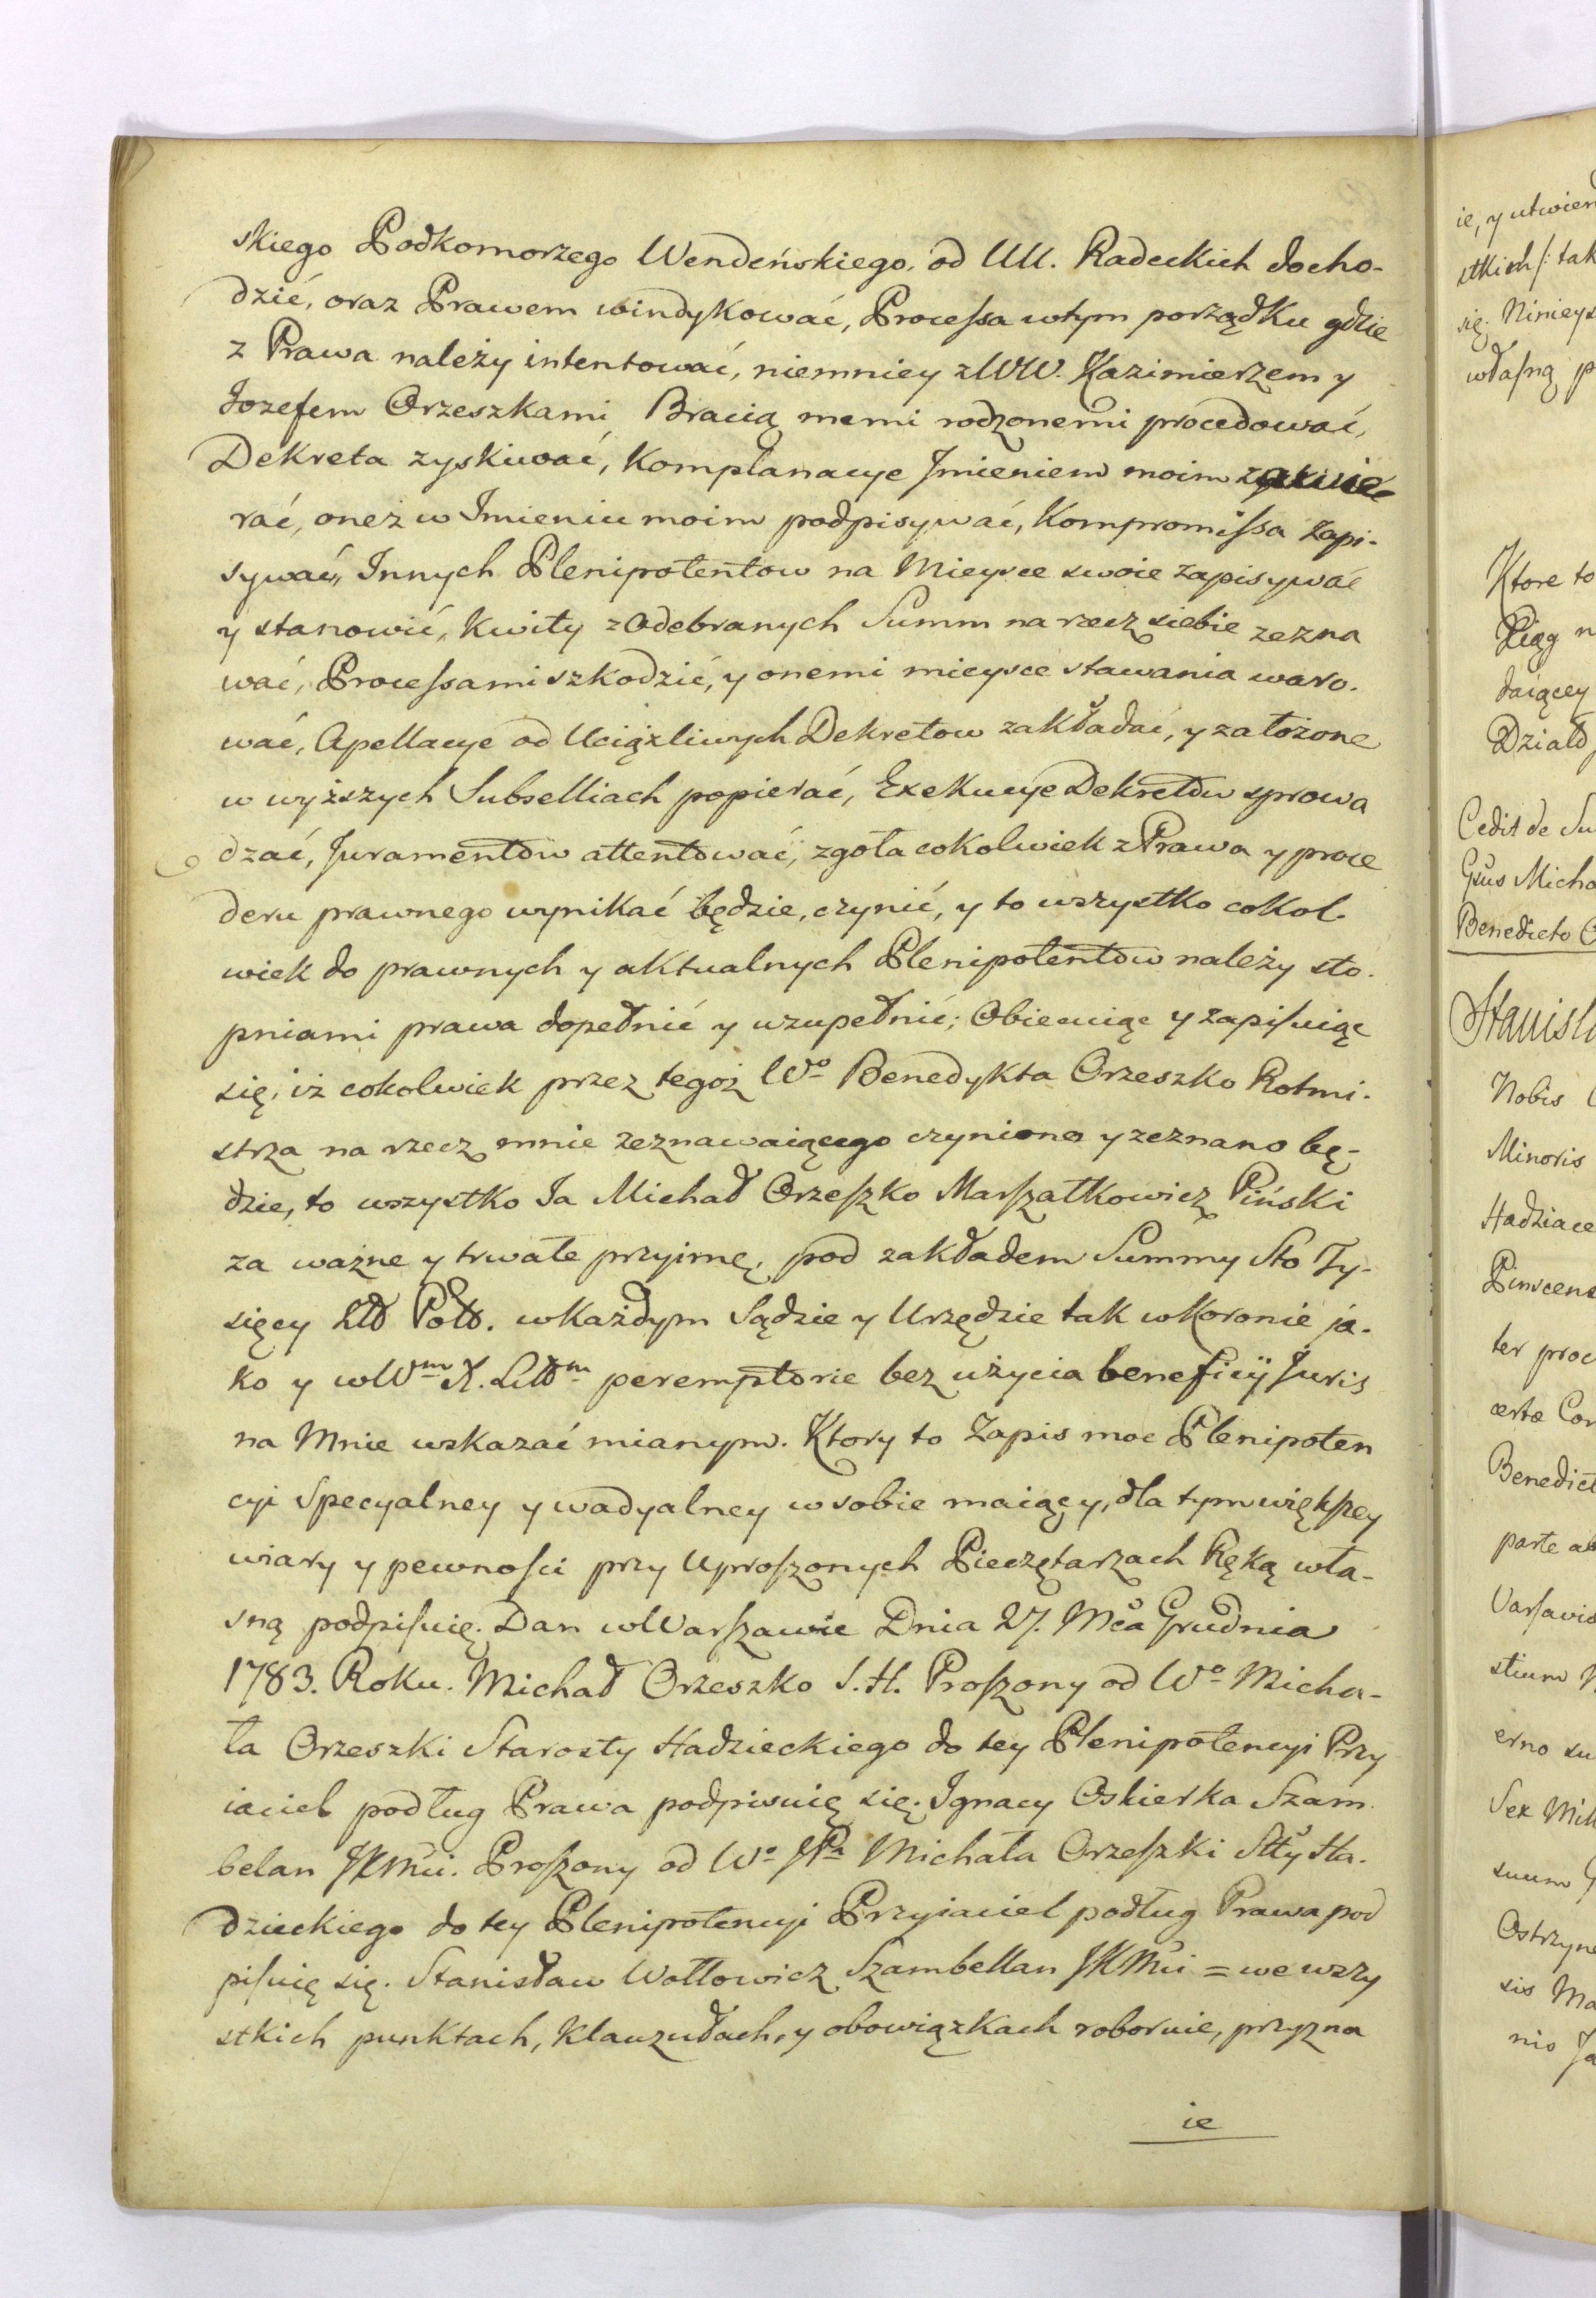 skiego Podkomorzego Wendeńskiego, od UU. Radeckich docho-
dzić, oraz Prawem windykować, Processa wtym porządku gdzie
z Prawa należy intentować, niemniey z WW. Kazimierzem y
Jozefem Orzeszkami Bracią memi rodzonemi procedować,
Dekreta zyskiwać, Komplanacye Jmieniem moim zawie-
rać, oneż w Jmieniu moim podpisywać, Kompromissa zapi-
sywać, Innych Plenipotentow na Mieysce swoie zapisywać
y stanowić, Kwity z Odebranych Summ na rzecz siebie zezna
wać, Processami szkodzić, y onemi mieysce stawania waro-
wać, Apellacye od Uciążliwych Dekretow zakładać, y założone
w wyższych Subselliach popierać, Exekucye Dekretow sprowa
dzać, Juramentow attentować, zgoła cokolwiek z Prawa y proce
deru prawnego wynikać będzie, czynić, y to wszystko cokol-
wiek do prawnych y aktualnych Plenipotentow należy sto-
pniami prawa dopełnić y uzupełnić; Obiecuiąc y zapisuiąc
się, iż cokolwiek przez tegoż Wo Benedykta Orzeszko Rotmi-
strza na rzecz mnie zeznawaiącego czyniono y zeznano bę-
dzie, to wszystko Ja Michał Orzeszko Marszałkowicz Piński
za ważne y trwałe przyimę, pod zakładem Summy Sto Ty-
sięcy Złł Pollł. wkażdym Sądzie y Urzędzie tak wKoronie ja-
ko y wWm X. Littm peremptorie bez użycia beneficij Juris
na Mnie wskazać mianym. Ktory to Zapis moc Plenipoten
cyi Specyalney y wadyalney w sobie maiący, dla tym większey
wiary y pewności przy Uproszonych Pieczętarzach Ręką wła-
sną podpisuię. Dan wWarszawie Dnia 27. Mca Grudnia
1783. Roku. Michał Orzeszko S. H. Proszony od Wo Micha-
ła Orzeszki Starosty Hadzieckiego do tey Plenipotencyi Przy
iaciel podług Prawa podpisuię się. Ignacy Oskierka Szam
belan JKMci. Proszony od Wo JPa Michała Orzeszki Stty Ha-
dzieckiego do tey Plenipotencyi Przyiaciel podług Prawa pod
pisuię się. Stanisław Wołłowicz Szambellan JKMci = we wszy
stkich punktach, Klauzułach, y obowiązkach roboruie, przyzna
ie
ie, y utwier
stkich /: tak
się. Ninieys
własną p
Ktore to
Xiąg n
daiącey
Dział
Cedit de Su
Gsus Micha
Benedicto O
Stanisl
Nobis
Minoris
Hadziace
Pinscens
ter proc
certæ Con
Benedict
parte ab
Varsavia
stium
erno su
Sex Mill
suum G
Ostrzyn
sis Ma
nis Ja